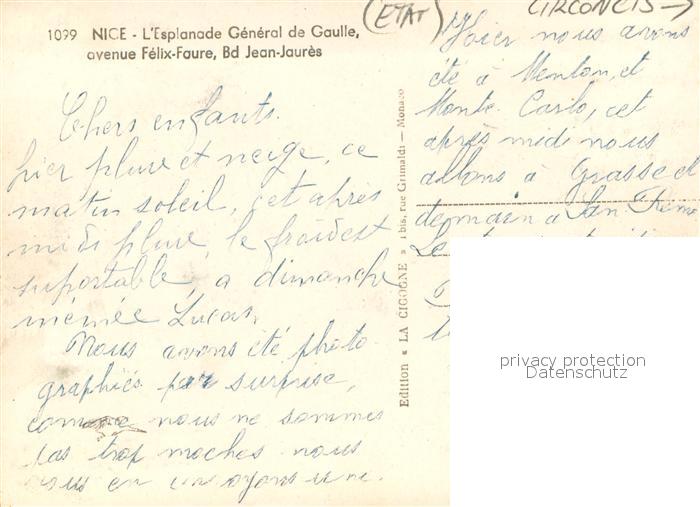 1099 NICE - L'Esplanade Général de Gaulle,
avenue Félix-Faure, Bd Jean-Jaurès
(ETAT)
CIRCONCIS →
Chers enfants.
hier pluie et neige, ce
matin soleil, cet après
midi pluie, le froid est
suportable, a dimanche
mémée Lucas.
Nous avons été photo-
graphiés par surprise,
comme nous ne sommes
pas trop moches nous
vous en envoyons une.
Edition « LA CIGOGNE » bis, rue Grimaldi — Monaco
Hier nous avons
été à Menton, et
Monte-Carlo, cet
après midi nous
allons à Grasse et
demain a San Remo
privacy protection
Datenschutz